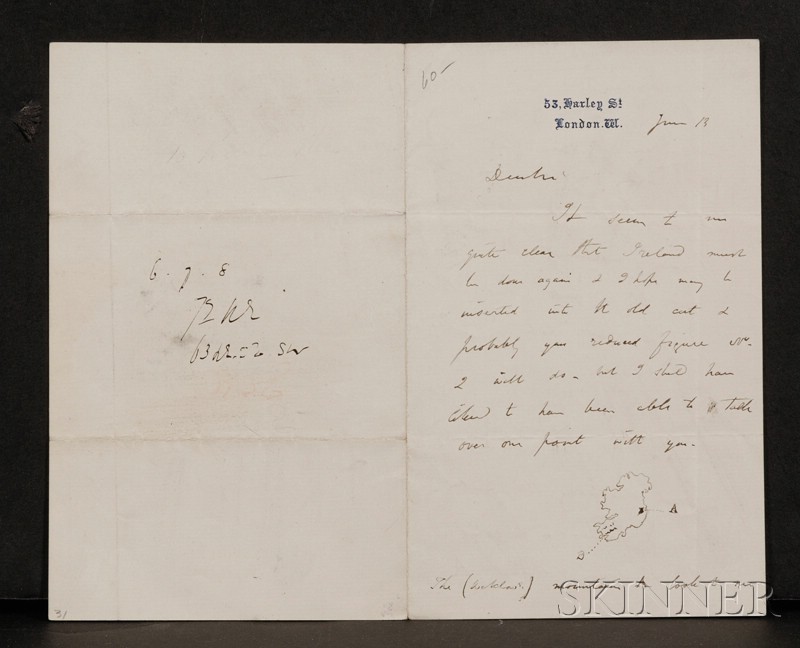 60-
53, Harley St
London. W.
June 13
Dear Sir
It seems to me
quite clear that Ireland must
be done again & I hope may be
inserted into the old cut &
probably your reduced figure No.
2 will do - but I shd have
liked to have been able to talk
over one point with you.
A
D
The mountain
6. 7. 8
63
31
SKINNER